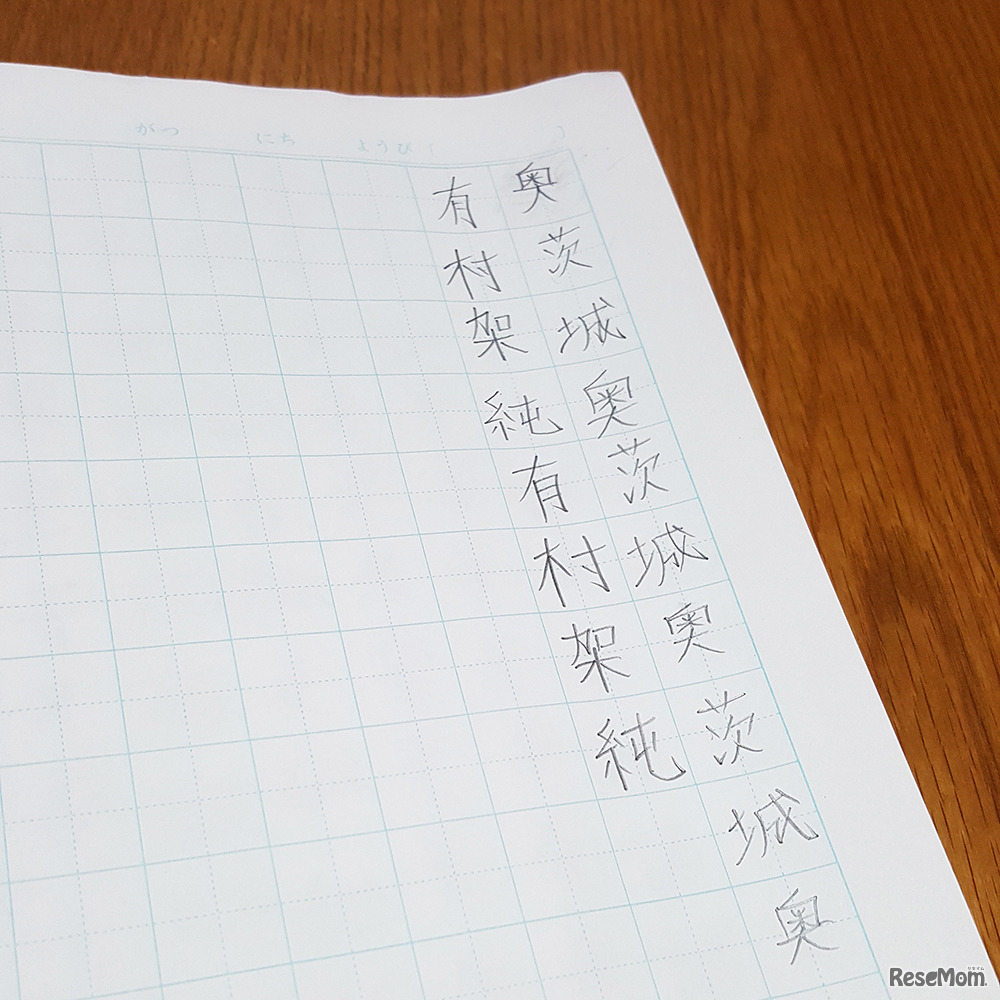 がつ にち ようび( )
奥茨城奥茨城奥茨城奥
有村架純有村架純
ReseMom.
リセマム